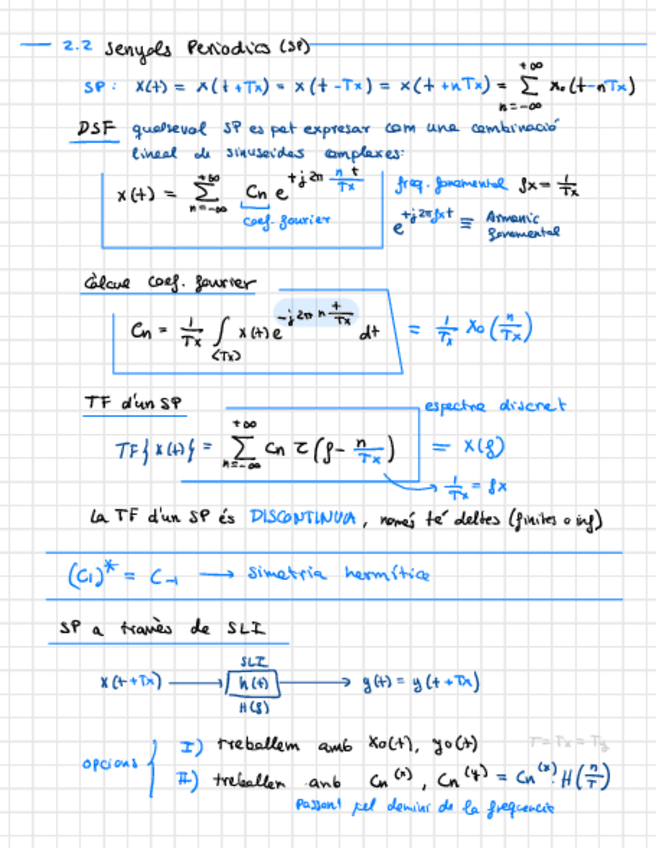 2.2 Senyals Periodics (SP)
SP: x(t) = x(t+Tx) = x(t-Tx) = x(t+nTx) = ∑_{n=-∞}^{+∞} x₀(t-nTx)
DSF qualsevol SP es pot expresar com una combinació
lineal de sinusoides complexes:
x(t) = ∑_{n=-∞}^{+∞} Cn e^{+j2π n t/Tx}
coef. fourier
freq. fonamental fx = 1/Tx
e^{+j2πfxt} ≡ Armonic
fonamental
Càlcul coef. fourier
Cn = 1/Tx ∫_{<Tx>} x(t) e^{-j2π n t/Tx} dt = 1/Tx X₀(n/Tx)
TF d'un SP
espectre discret
TF{x(t)} = ∑_{n=-∞}^{+∞} Cn δ(f - n/Tx) = X(f)
→ 1/Tx = fx
La TF d'un SP és DISCONTINUA, només té deltes (finites o inf)
(C₁)* = C₋₁ → Simetria hermítica
SP a través de SLI
SLI
x(t+Tx) → h(t) → y(t) = y(t+Tx)
H(f)
opcions
I) treballem amb x₀(t), y₀(t)
T=Tx=Ty
II) treballem amb Cn^(x), Cn^(y) = Cn^(x) · H(n/T)
Passant pel domini de la frequencia